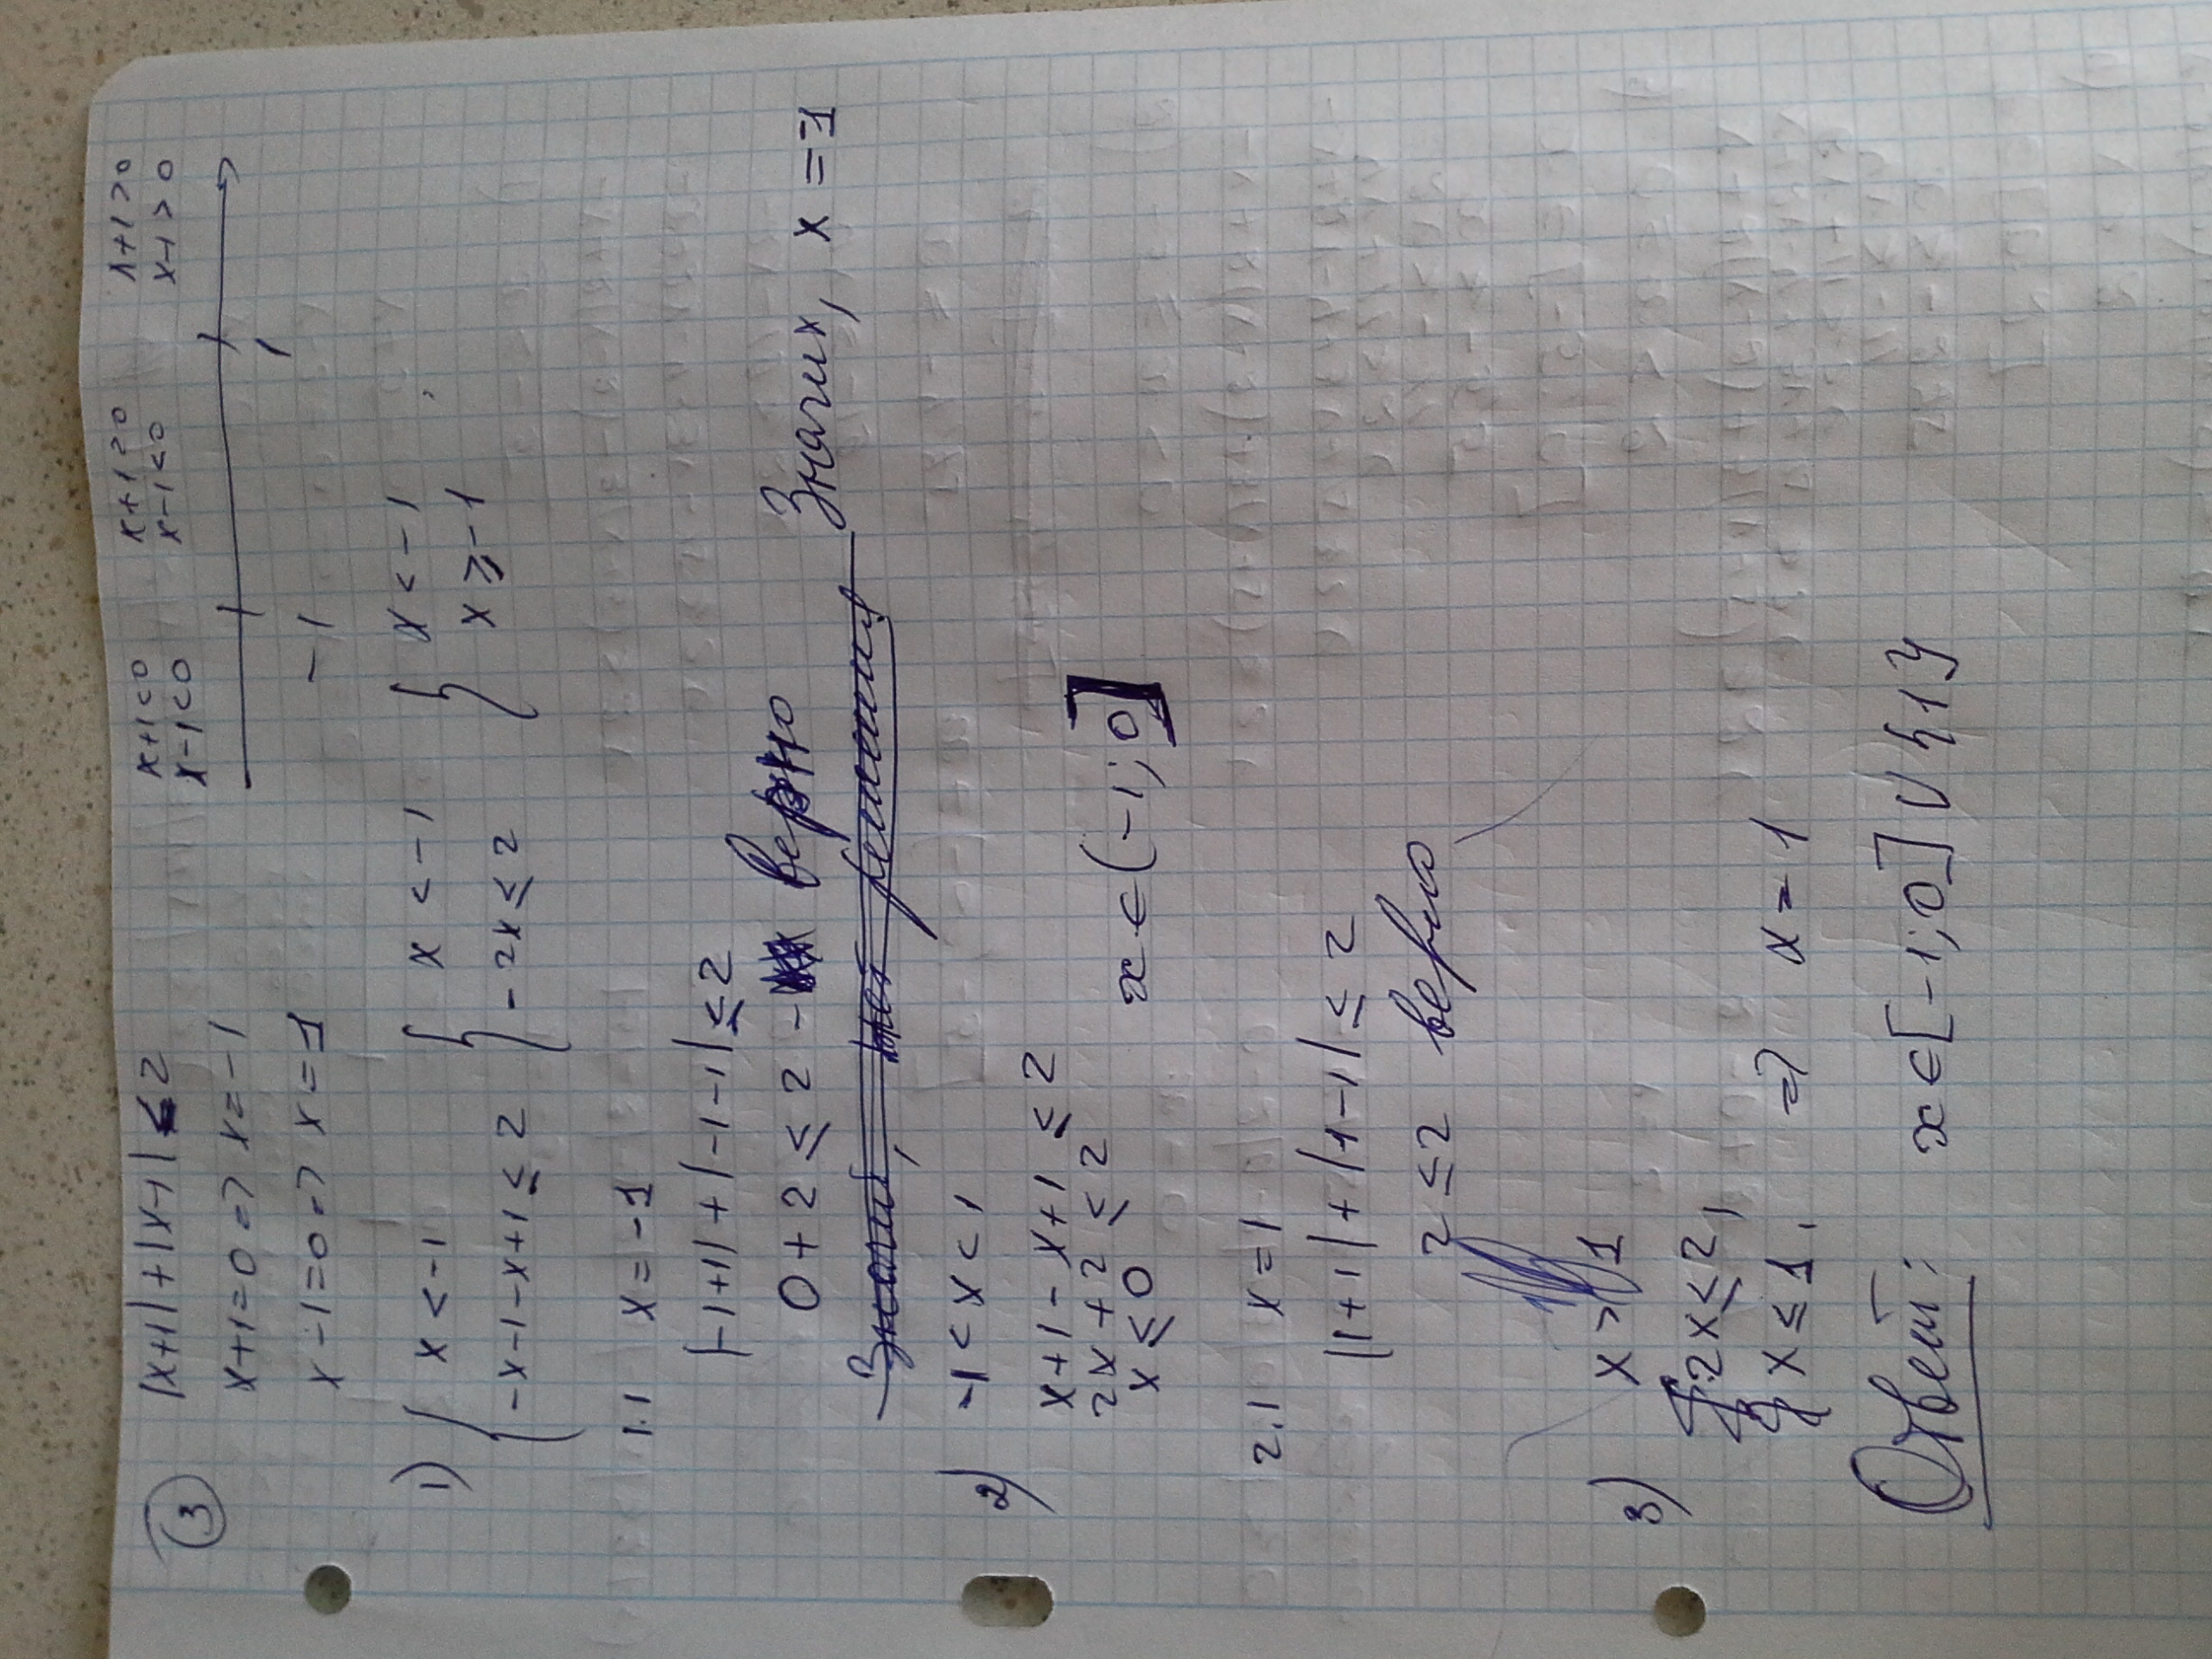 3 |x+1|+|x-1|≤2
x+1<0 x+1>0 x+1>0
x-1<0 x-1<0 x-1>0
x+1=0 => x=-1
-1 1
x-1=0 => x=1
1) { x<-1 { x<-1 { x<-1
-x-1-x+1≤2 -2x≤2 x≥-1
1.1 x=-1
|-1+1|+|-1-1|≤2
0+2≤2 - верно
Значит, x=-1
2) -1<x<1
x+1-x+1≤2
2x+2≤2
x≤0 x∈(-1;0]
2.1 x=1
|1+1|+|1-1|≤2
2≤2 верно
3) x>1
2x≤2,
x≤1. => x=1
Ответ: x∈[-1;0]U{1}